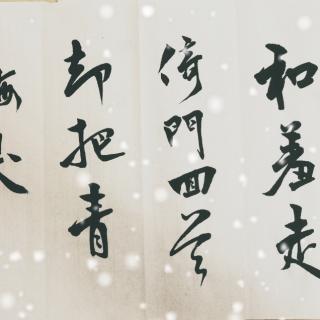 和羞走
倚門回首
却把青
梅嗅